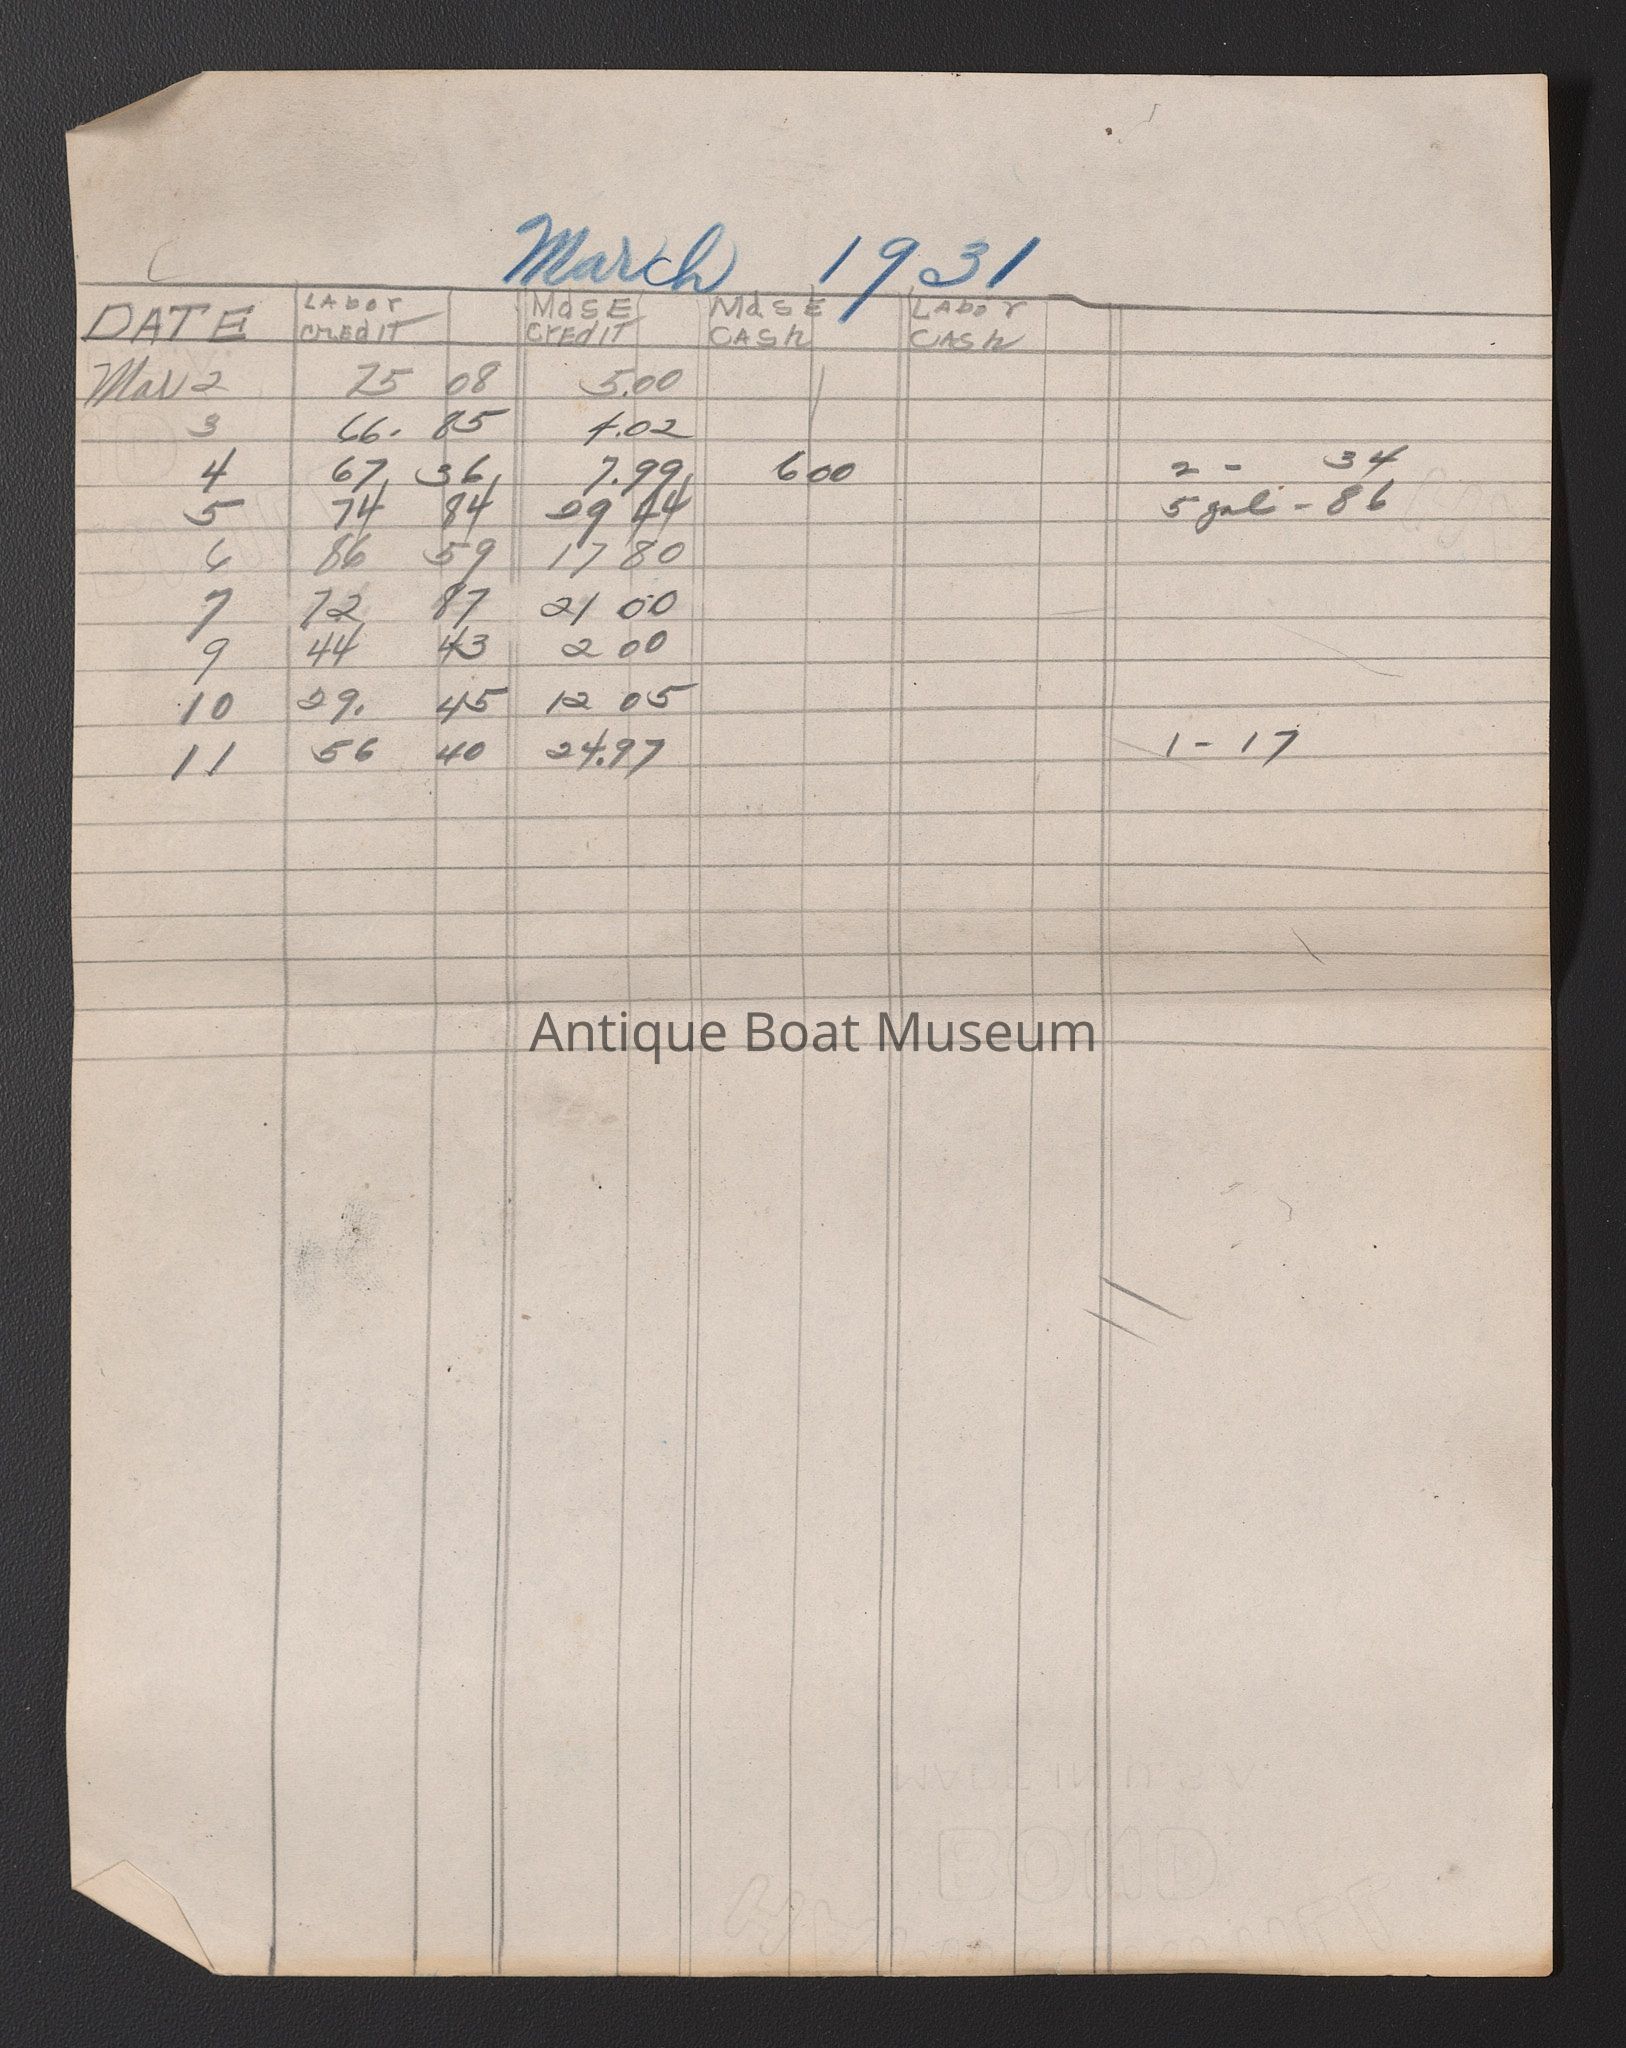 March 1931
DATE LABOR CREDIT MdSE CREDIT MdSE CASH LABOR CASH
Mar 2 75 08 5.00
3 66. 85 1.02
4 67 36 7.99 6 00 2 - 34
5 74 84 29 44 5 gal - 86
6 86 59 17 80
7 72 87 21 00
9 44 43 2 00
10 29. 45 12 05
11 56 40 24.97 1 - 17
Antique Boat Museum
MADE IN U.S.A.
BOND